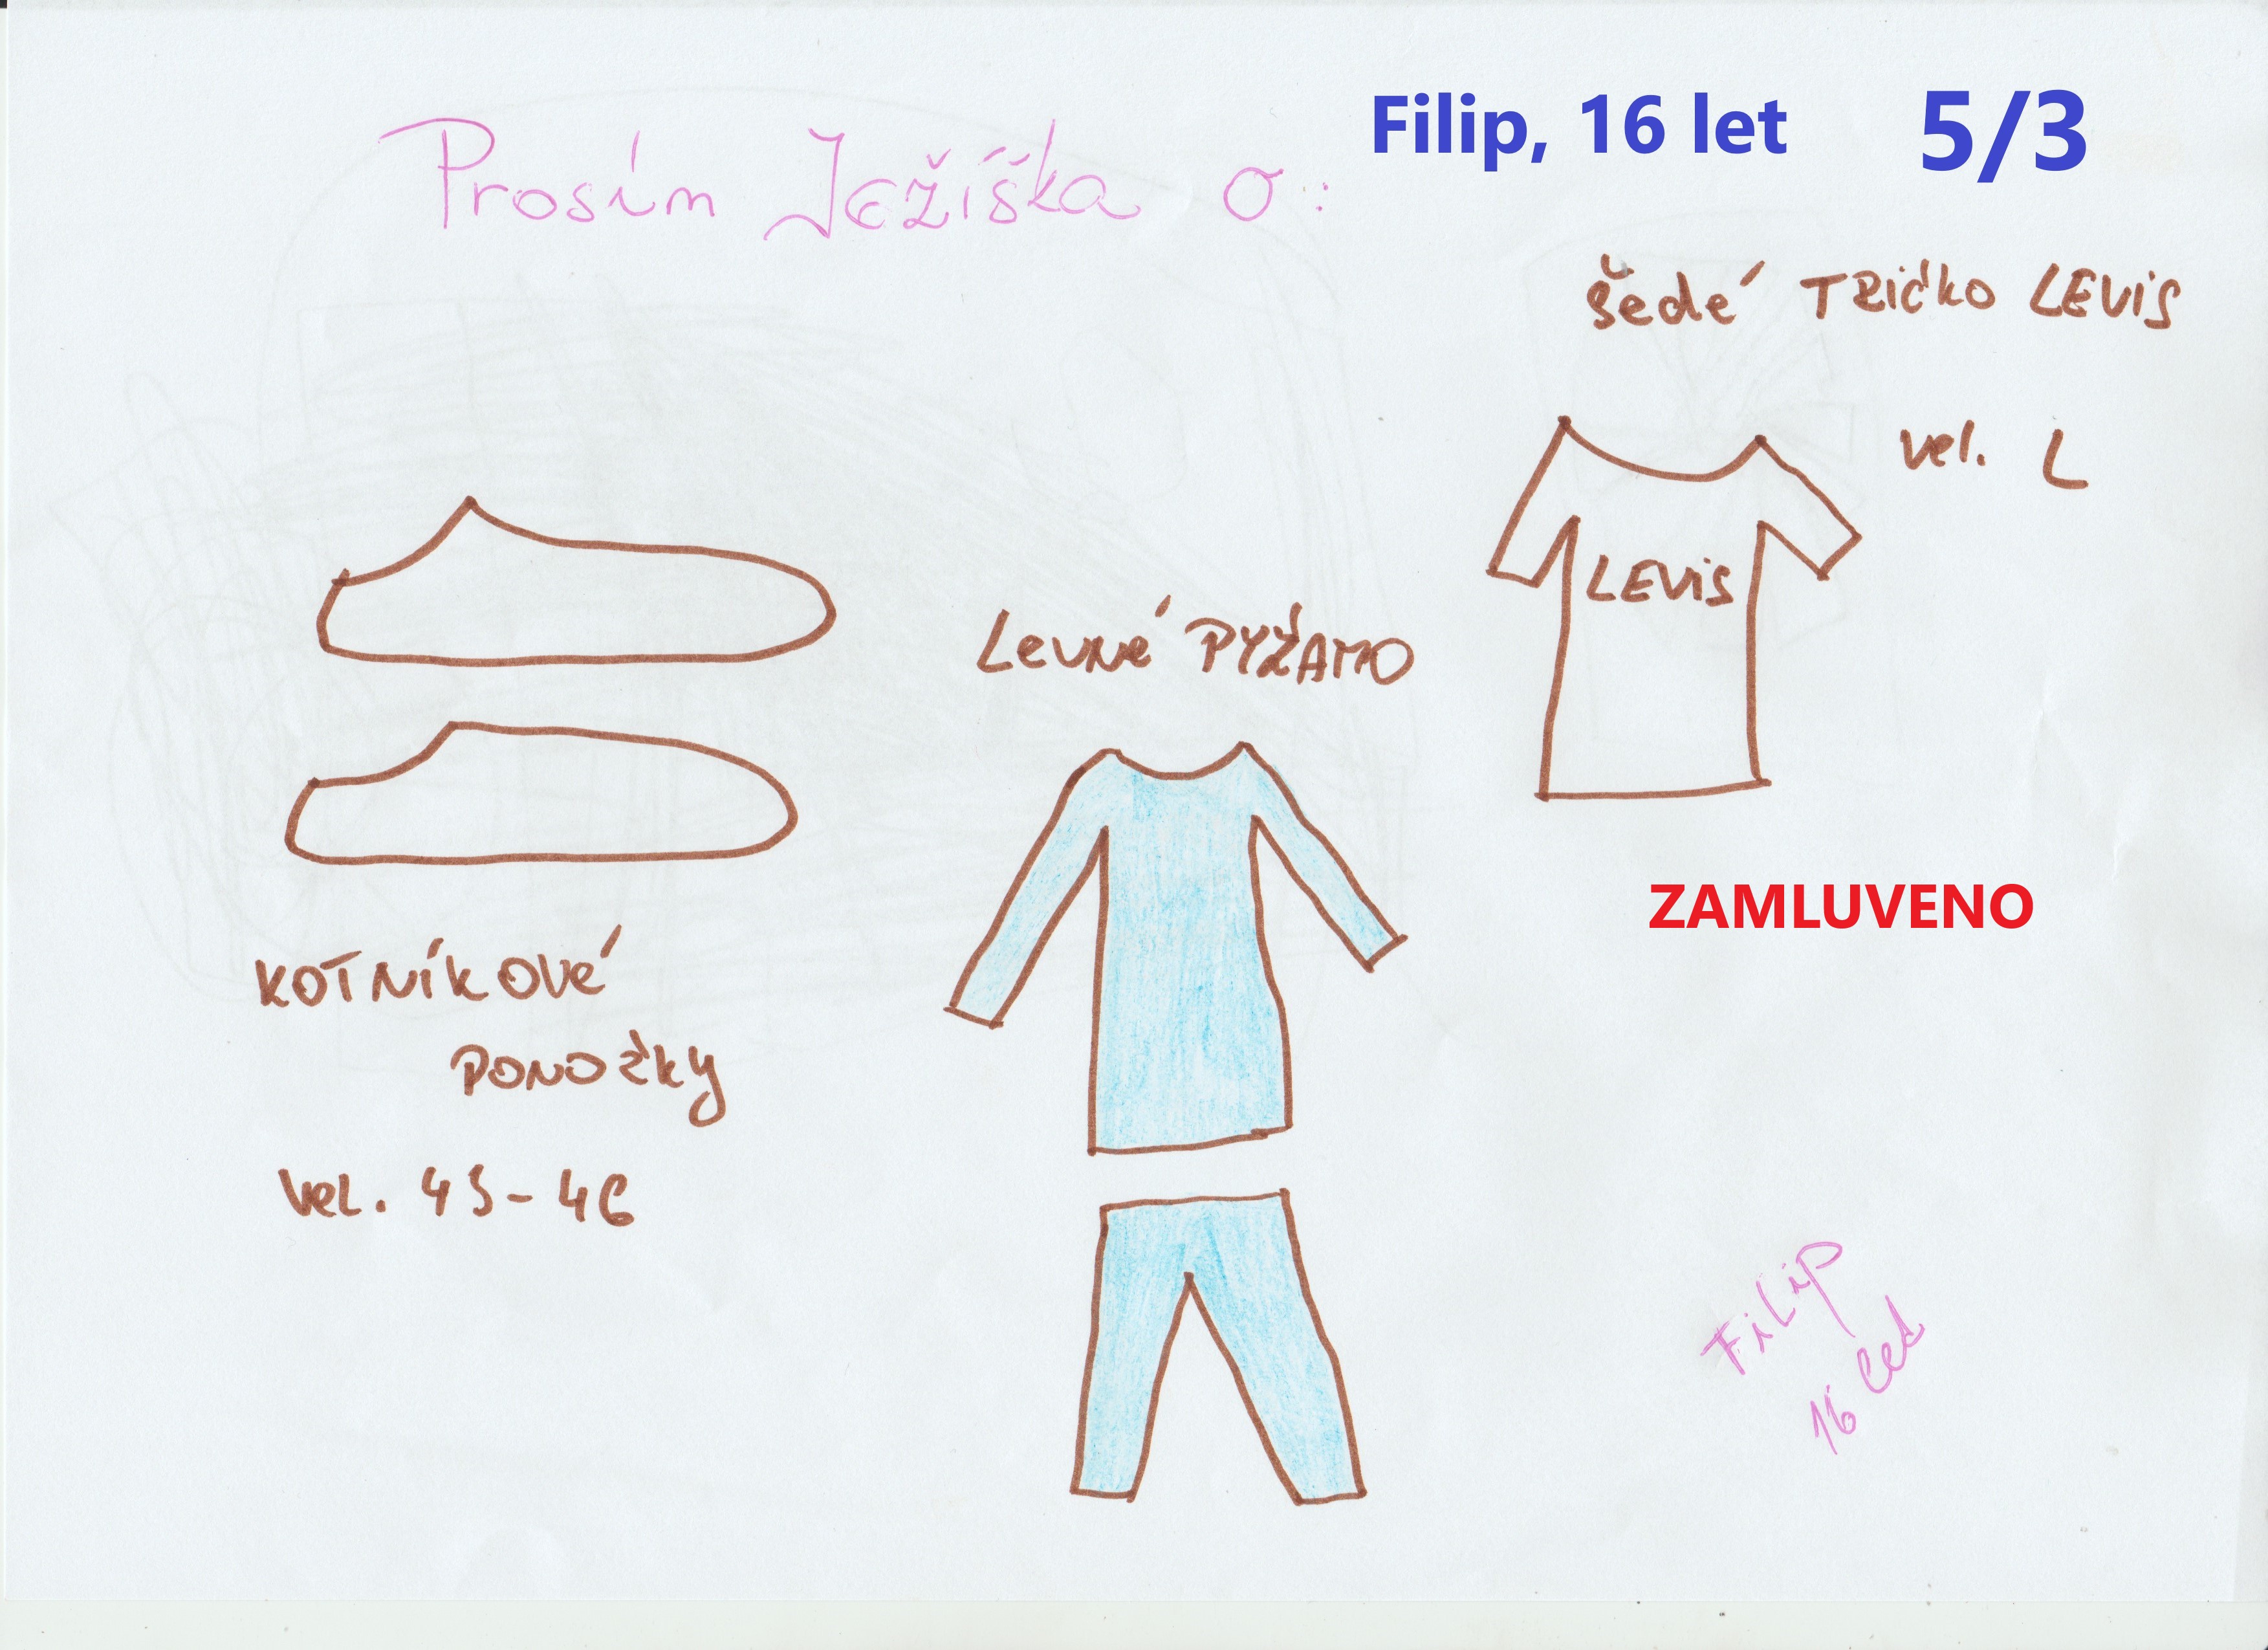 Prosím Ježíška o:
Filip, 16 let 5/3
šedé TRičko LEVIS
vel. L
LEVIS
LEVNé PYŽAMO
ZAMLUVENO
KOTNÍKOVé
PONOŽKY
vel. 45-46
FiLiP
16 let